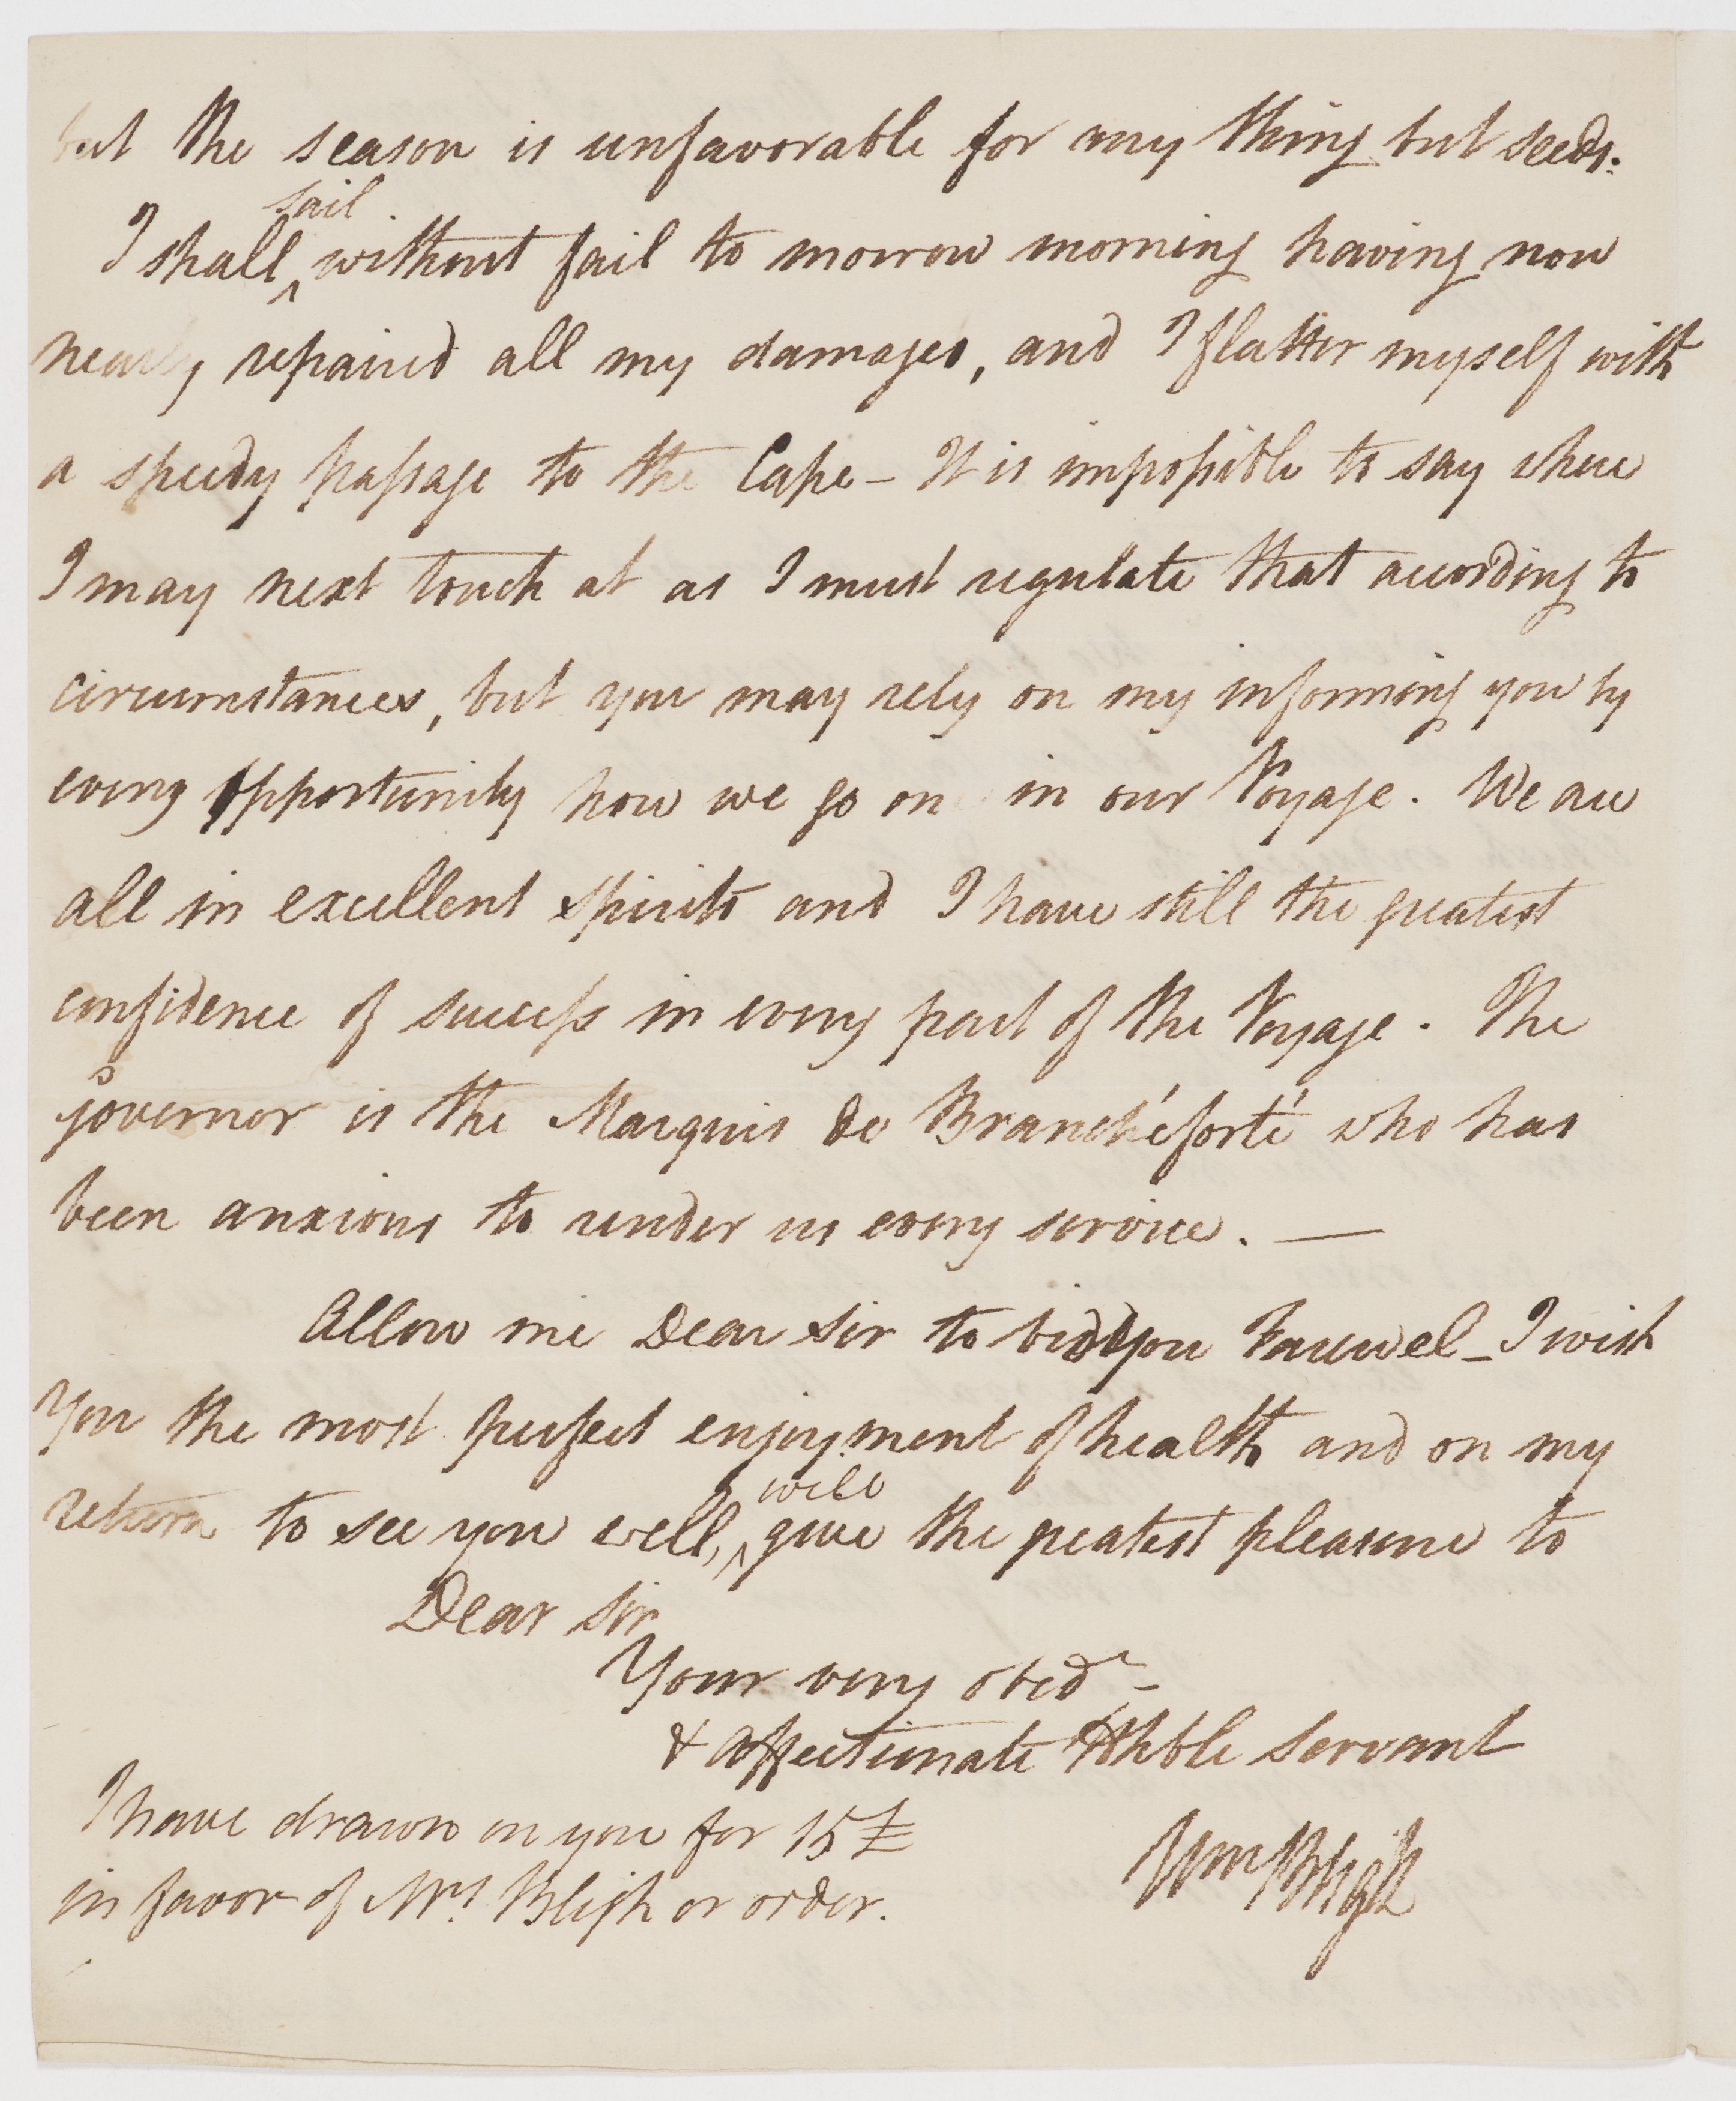 but the season is unfavorable for any thing but seeds.
I shall ^sail without fail to morrow morning having now
nearly repaired all my damages, and I flatter myself with
a speedy passage to the Cape - It is impossible to say where
I may next touch at as I must regulate that according to
circumstances, but you may rely on my informing you by
every opportunity how we go on in our Voyage. We are
all in excellent spirits and I have still the greatest
confidence of success in every part of the Voyage. The
Governor is the Marquis de Branchéforté who has
been anxious to render us every service. —
Allow me Dear Sir to bid you Farewel - I wish
You the most perfect enjoyment of health and on my
return to see you well, ^will give the greatest pleasure to
Dear Sir
Your very obedt -
& affectionate Hble Servant
Wm Bligh
I have drawn on you for 15£
in favor of Mrs Bligh or order.